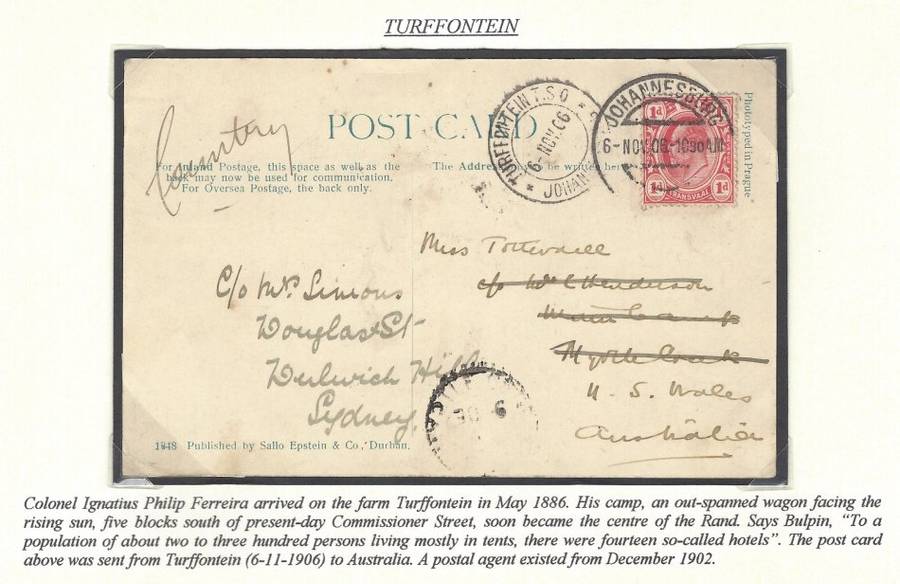 TURFFONTEIN
POST CARD
For Inland Postage, this space as well as the
back may now be used for communication.
For Oversea Postage, the back only.
The Address be written here
TURFFONTEIN T.S.O
6-NOV.06
* JOHAN
JOHANNESBURG
6-NOV.06-1030AM
1d 1d
TRANSVAAL
1d 1d
Phototyped in Prague
Miss
c/o Mr C Henderson
Main Camp
Myrtle Creek
N. S. Wales
Australia
C/o Mrs Simons
Douglas St
Dulwich Hill
Sydney
1848 Published by Sallo Epstein & Co, Durban.
Colonel Ignatius Philip Ferreira arrived on the farm Turffontein in May 1886. His camp, an out-spanned wagon facing the
rising sun, five blocks south of present-day Commissioner Street, soon became the centre of the Rand. Says Bulpin, “To a
population of about two to three hundred persons living mostly in tents, there were fourteen so-called hotels”. The post card
above was sent from Turffontein (6-11-1906) to Australia. A postal agent existed from December 1902.